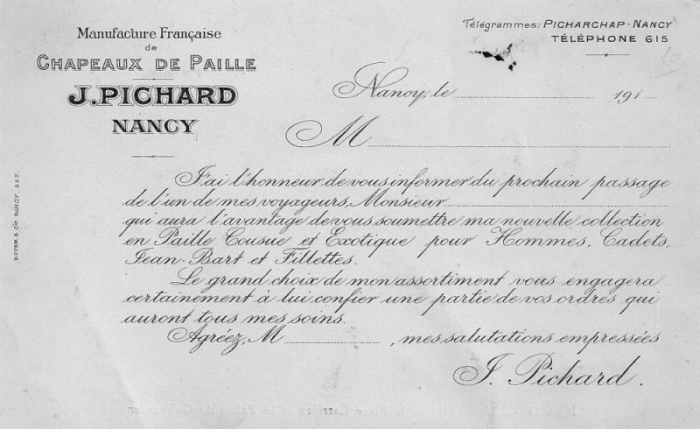 Manufacture Française
de
CHAPEAUX DE PAILLE
J. PICHARD
NANCY
Télégrammes: PICHARCHAP - NANCY
TÉLÉPHONE 615
Nancy, le 191
M
J'ai l'honneur de vous informer du prochain passage
de l'un de mes voyageurs, Monsieur
qui aura l'avantage de vous soumettre ma nouvelle collection
en Paille Cousue et Exotique pour Hommes, Cadets,
Jean-Bart et Fillettes.
Le grand choix de mon assortiment vous engagera
certainement à lui confier une partie de vos ordres qui
auront tous mes soins.
Agréez, M , mes salutations empressées
J. Pichard.
ROYER & Cie NANCY